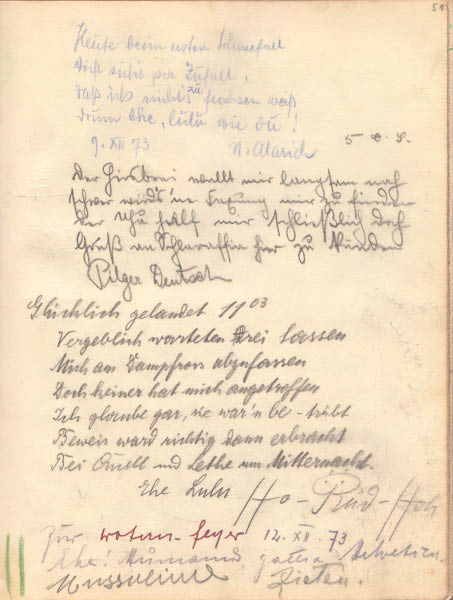 51
Heute beim ersten Schneefall
trifft sich's per Zufall,
daß ich nicht's zu fechsen weiß
drum Ehe, Lulu wie du!
9. XII 73
5
Der Girsbrei wallt mir langsam noch
schwer wird's 'ne Fexung mir zu finden
der Uhu half mir schließlich doch
Gruß an Schlaraffia hier zu künden
Pilger Deutsch
Glücklich gelandet 11 03
Vergeblich warteten drei Sassen
Mich am Dampfross abzufassen
Doch keiner hat mich angetroffen
Ich glaube gar, sie war'n be-trübt
Beweis ward richtig dann erbracht
Bei Quell und Lethe um Mitternacht.
Ehe Lulu Ho-Rüd-Hoh
Zur Wotan-feyer 12. XII. 73
Ehe! Helvetica.
Zieten.